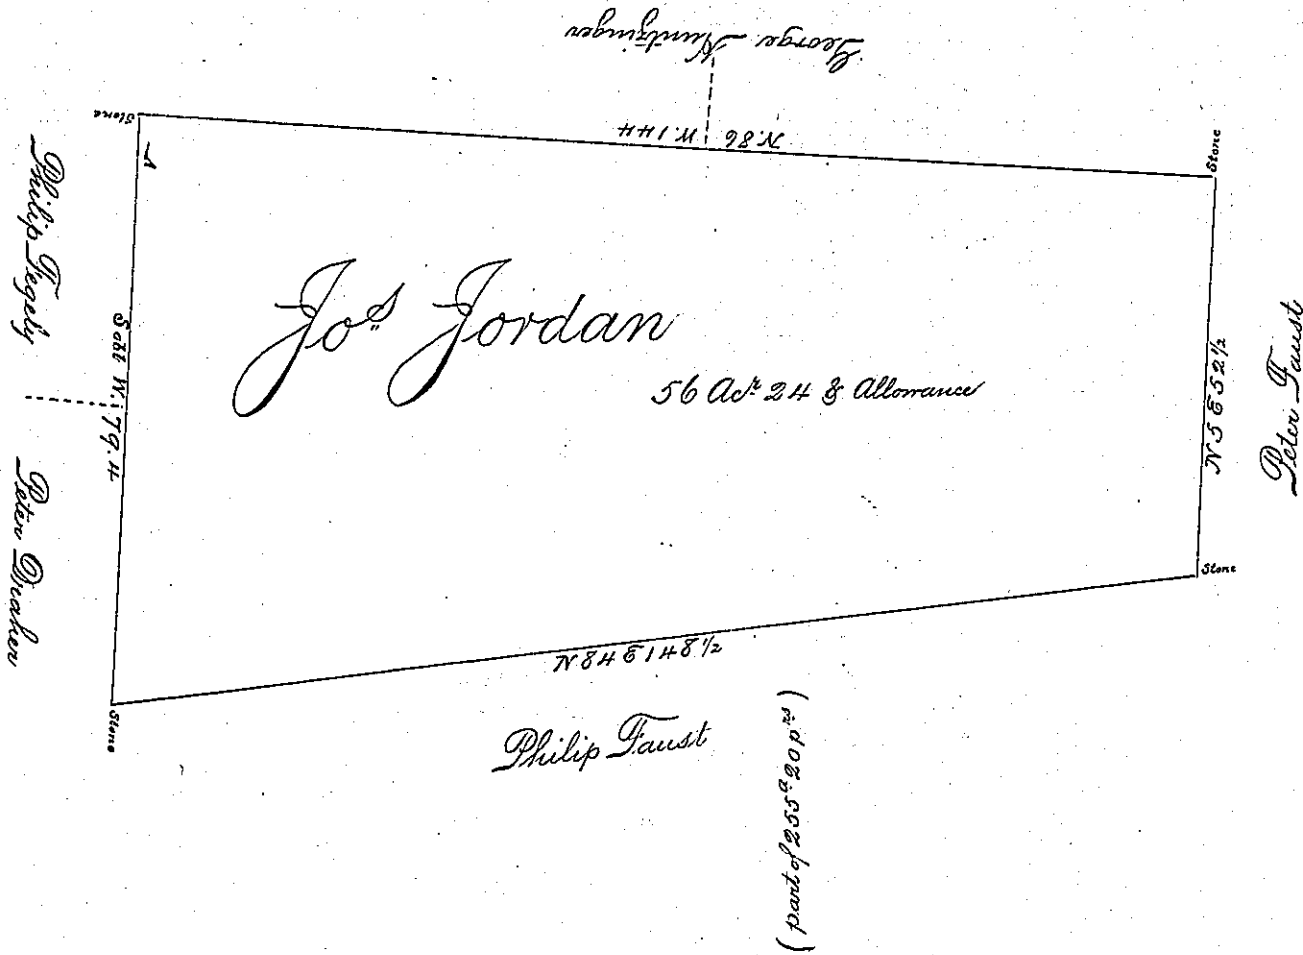 George Kuntzinger
N. 86 W. 144
Stone
Stone
A
Philip Fegely
S 03¼ W. 79.4
Peter Draher
Jos Jordan
56 Acr 24 & Allowance
N 5 E 52½
Peter Faust
Stone
N 84 E 148½
Stone
Philip Faust
(part of 255a 20 prs)